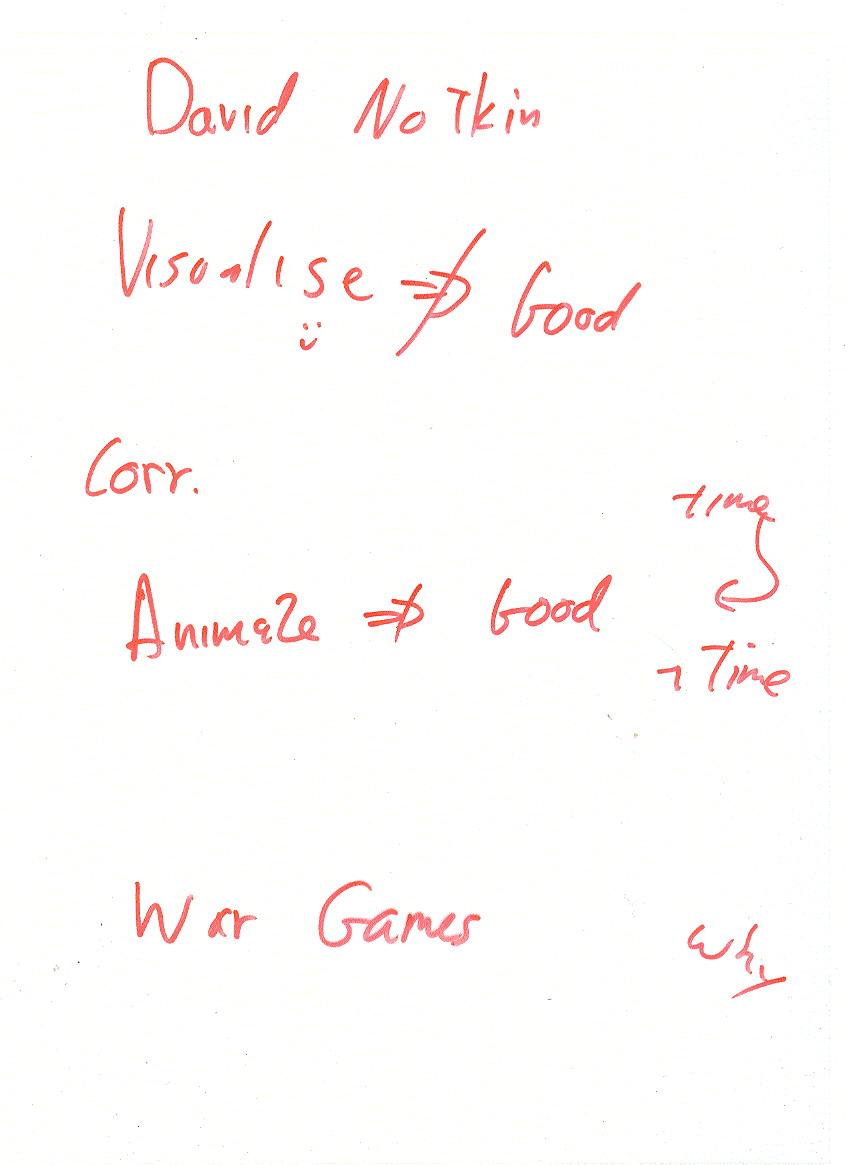 David Notkin
Visualise ⇏ Good
Corr.
time
Animate ⇏ Good
¬ Time
War Games
why